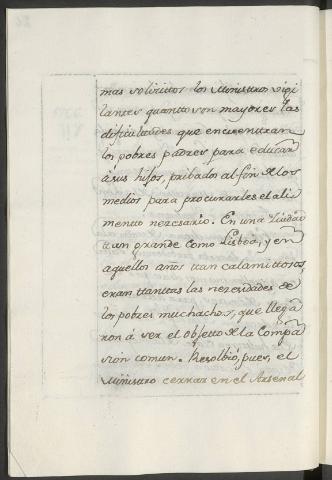 mas solicittos los Ministros vigi
lantes quantto son mayores las
dificulttades que encuenttran
los pobres padres para educar
á sus hijos, pribados al fin de los
medios para procurarles el ali
mentto nezesario. En una Ciudad
ttan grande como Lisboa, y en
aquellos años ttan calamittosos,
eran ttanttas las nezesidades de
los pobres muchachos, que llega
ron á ser el objetto de la Compa
sion comun. Resolbió, pues, el
Ministro cerrar en el Arsenal